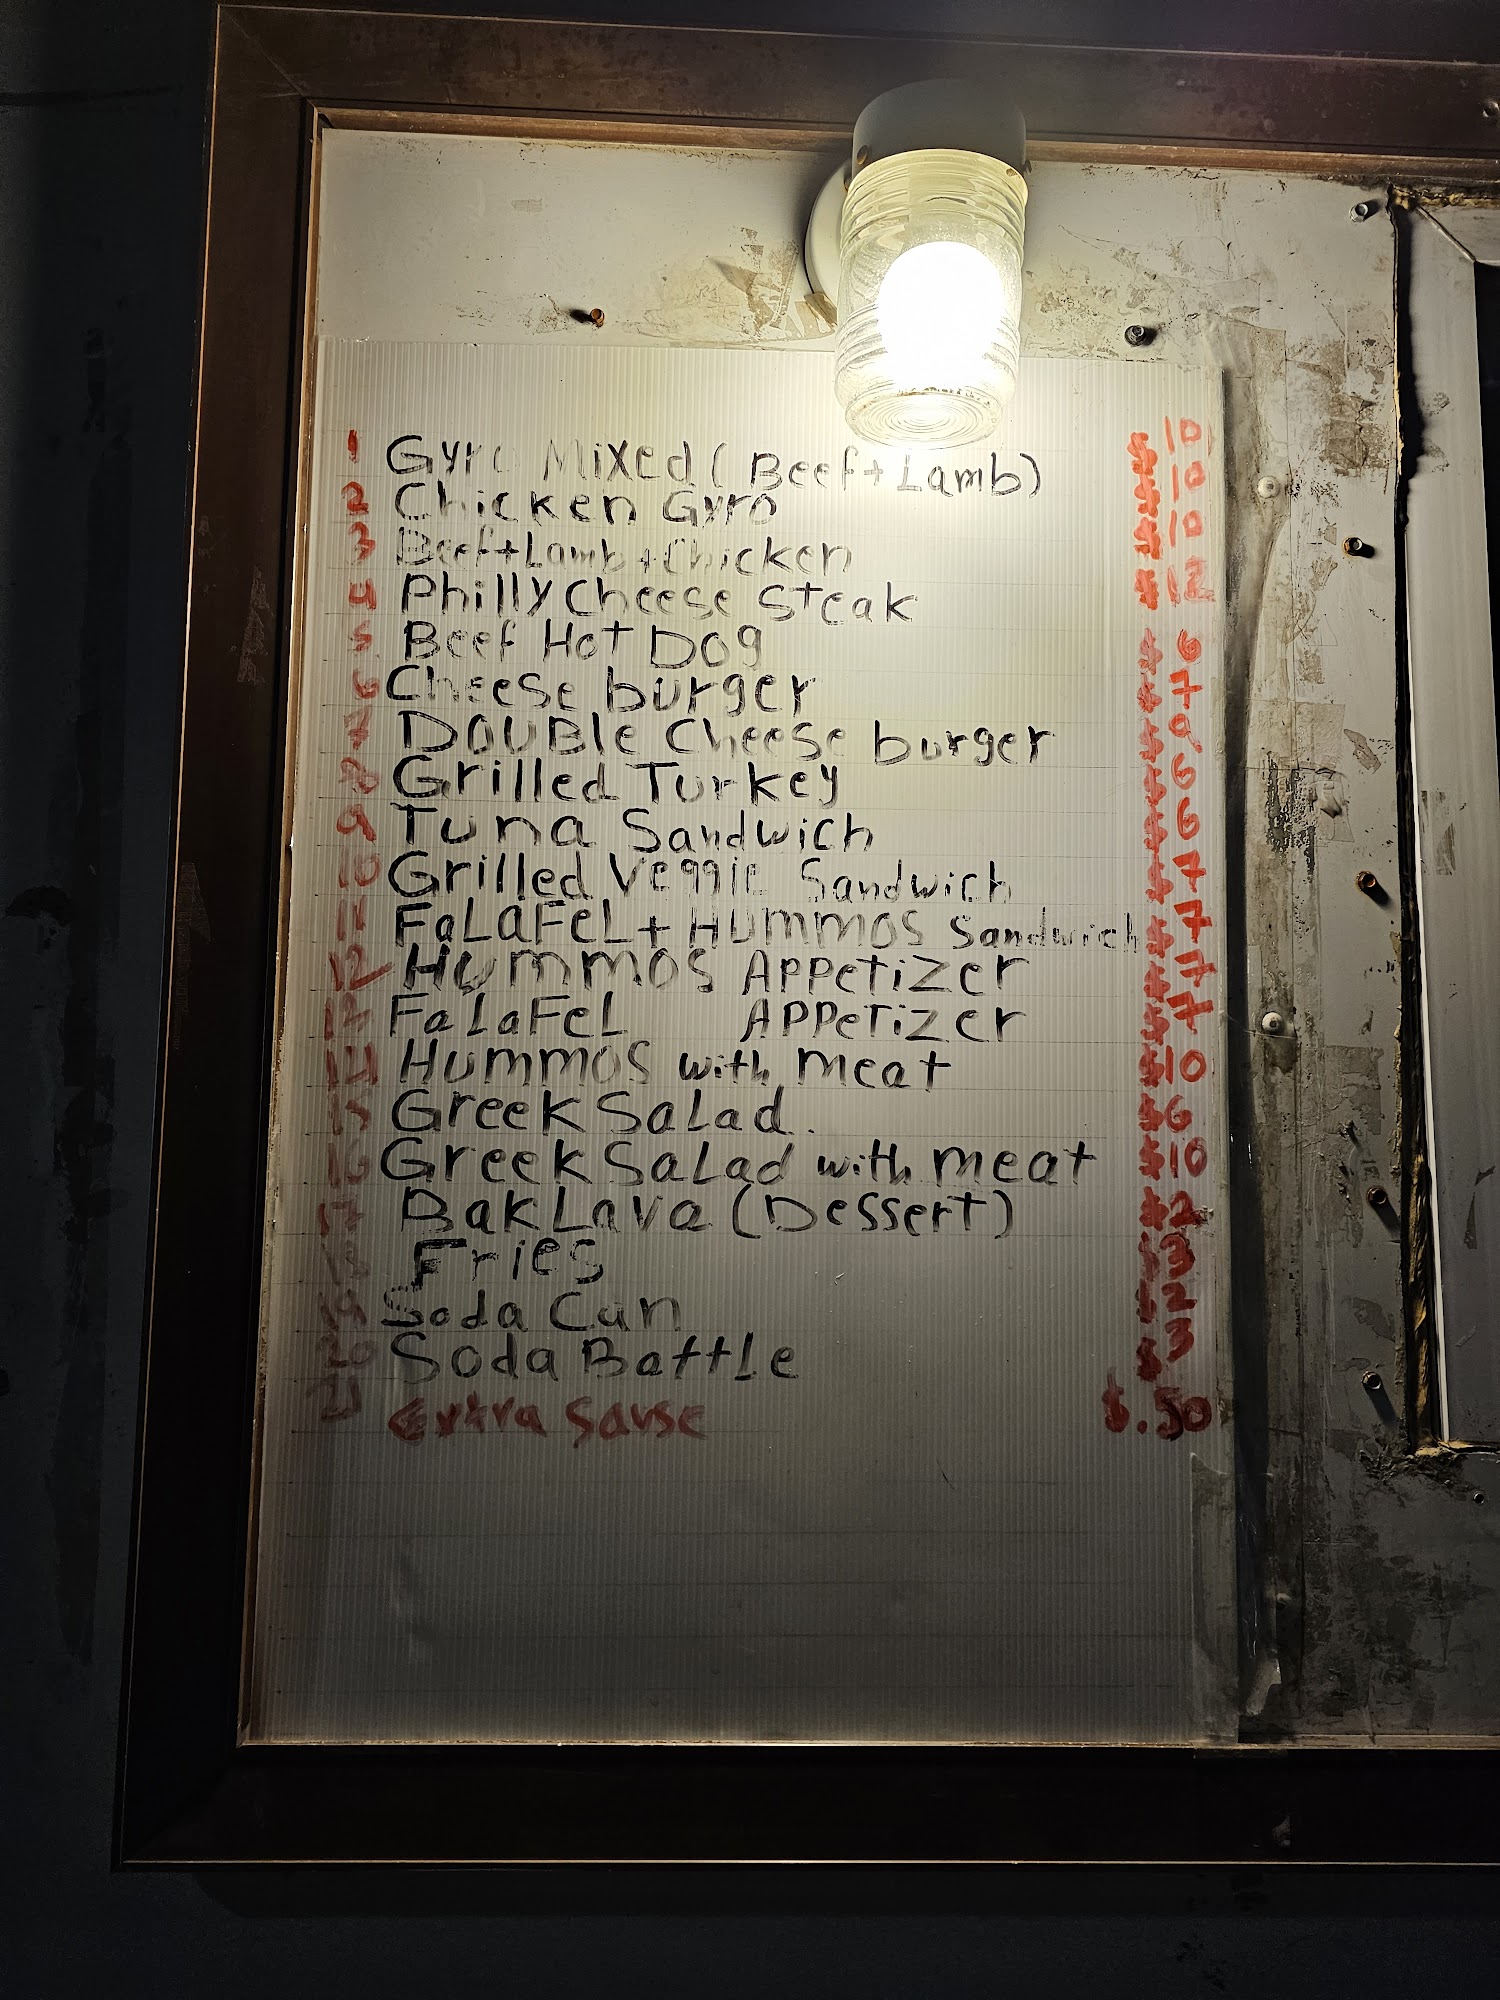 1 Gyro Mixed (Beef+Lamb) $10
2 Chicken Gyro $10
3 Beef+Lamb+Chicken $10
4 Philly Cheese Steak $12
5 Beef Hot Dog $6
6 Cheese burger $7
7 DOUBLE Cheese burger $9
8 Grilled Turkey $6
9 Tuna Sandwich $6
10 Grilled Veggie Sandwich $7
11 FaLaFeL+HUMMOS Sandwich $7
12 HUMMOS APPetizer $7
13 FaLaFeL APPetizer $7
14 HUMMOS with meat $10
15 Greek Salad. $6
16 Greek SaLad with meat $10
17 BakLava (Dessert) $2
18 Fries $3
19 Soda Can $2
20 Soda Bottle $3
21 extra Sause $.50